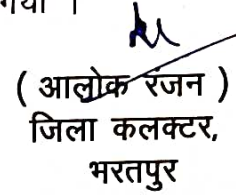 गया ।
( आलोक रंजन )
जिला कलक्टर,
भरतपुर